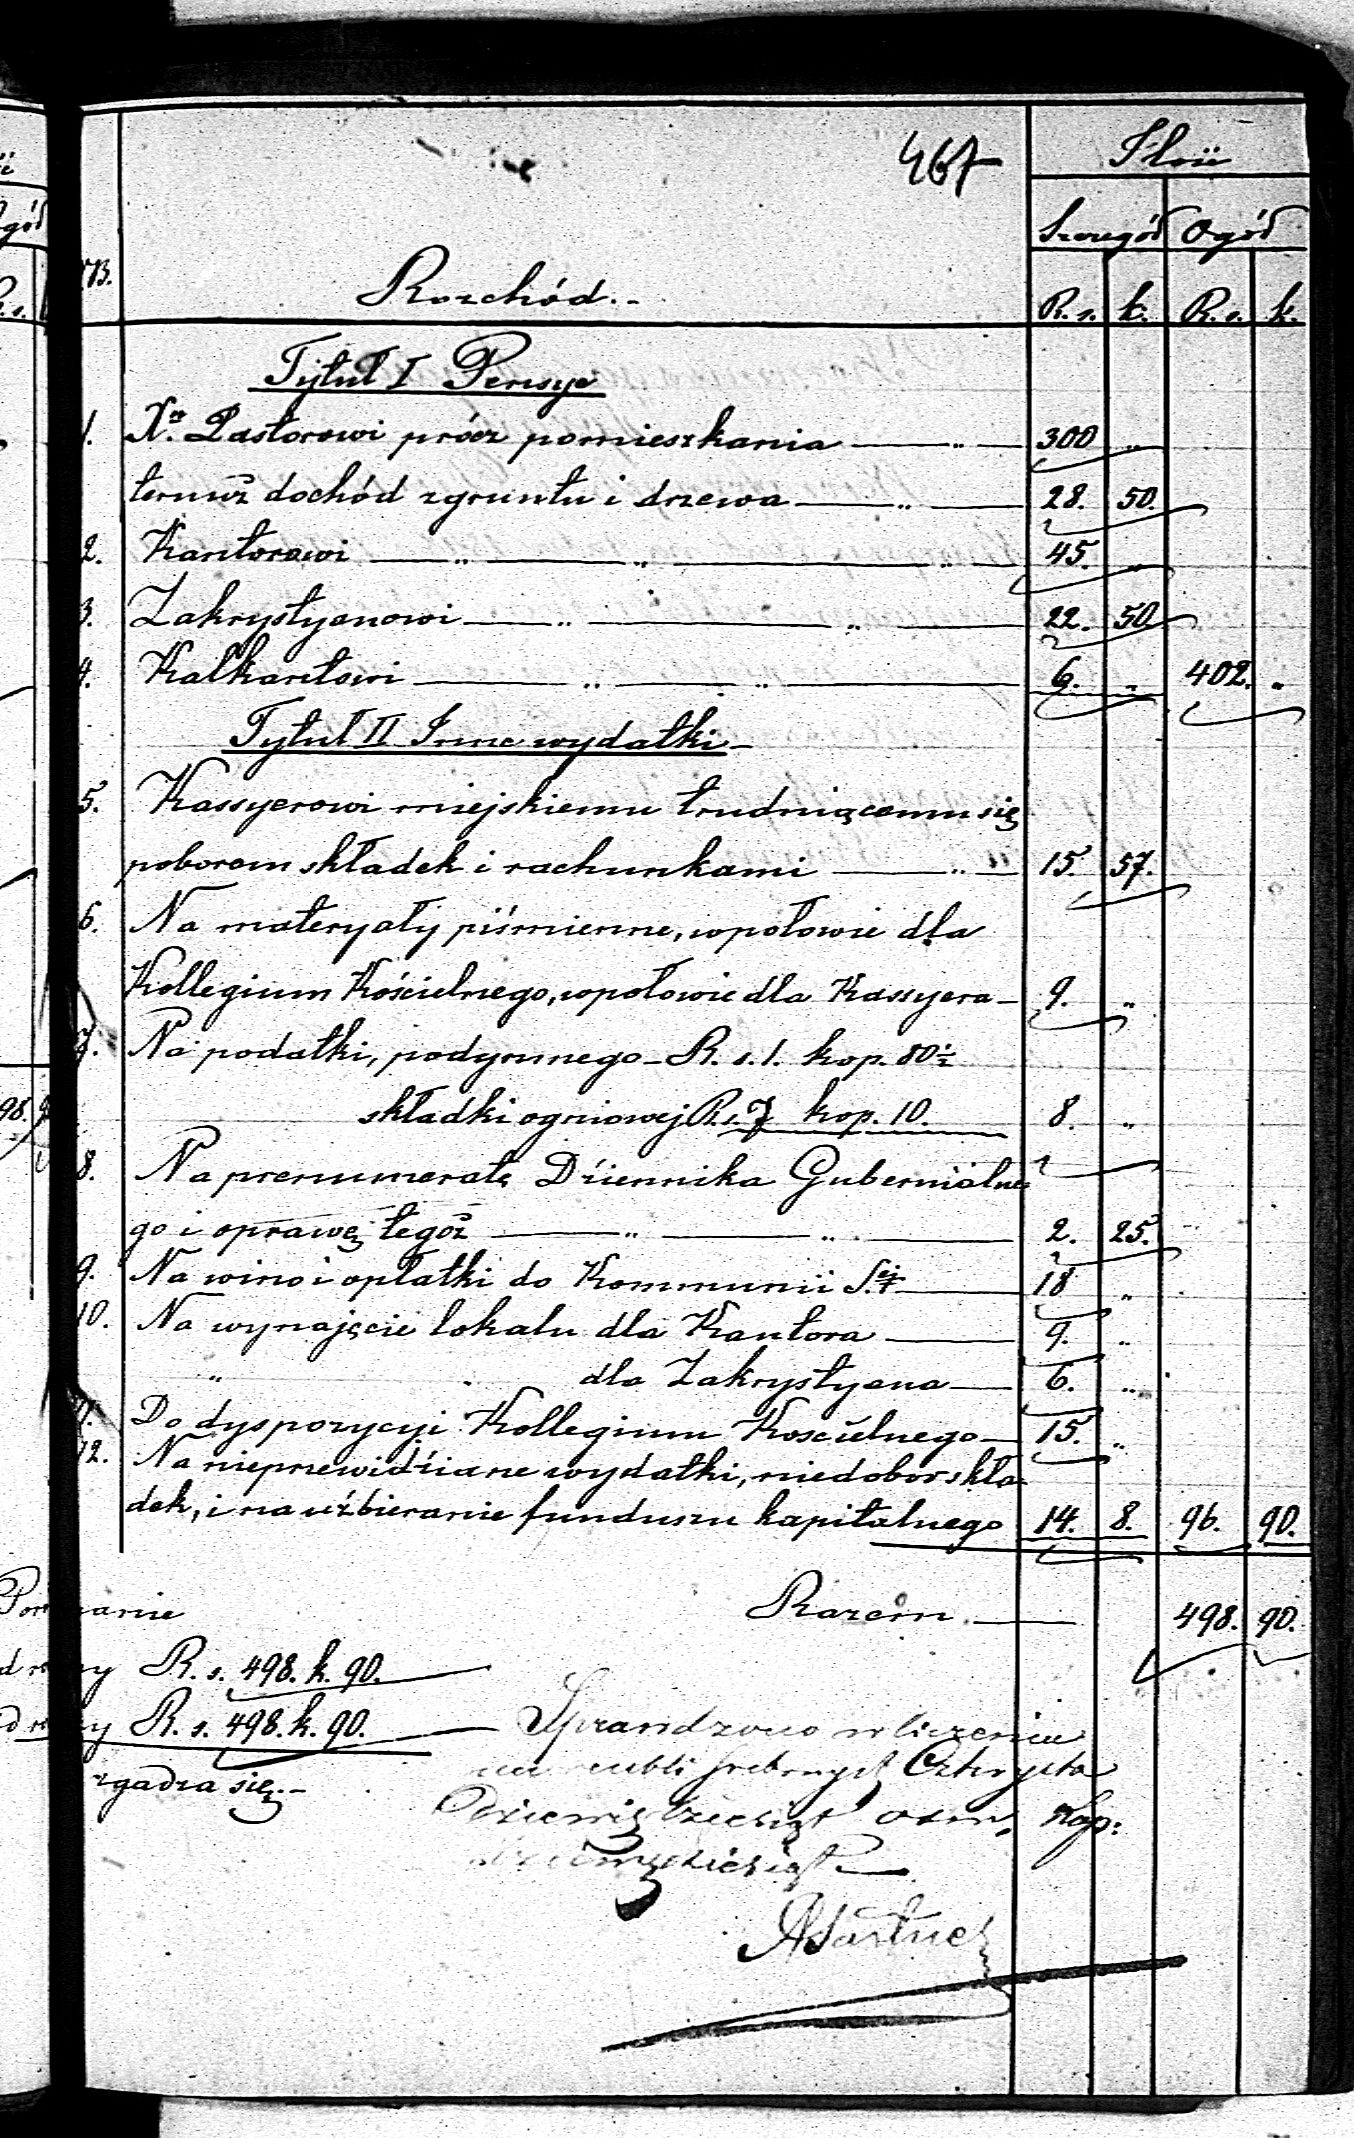 467
Ilość
Szczegół Ogół
NB. Rozchód.-
R. s. k. R. s. k.
Tytuł I Pensye
1. Xu. Pastorowi prócz pomieszkania — „ — 300 „
temuż dochód z gruntu i drzewa — „ — 28. 50.
2. Kantorowi — „ — „ — „ — 45. „
3. Zakrystyanowi — „ — „ — 22. 50
4. Kalkantowi — „ — „ — 6. „ 402. „
Tytuł II Inne wydatki -
5. Kassyerowi miejskiemu trudniącemu się
poborem składek i rachunkami — „ — 15. 57.
6. Na materyały piśmienne, wpołowie dla
Kollegium Kościelnego, wpołowie dla Kassyera - 9. „
7. Na podatki, podymnego - R. s. 1. kop. 80½
składki ogniowej R. s. 7 kop. 10. 8. „
8. Na prenumeratę Dziennika Gubernialne
go i oprawę tegoż — „ — „ — 2. 25.
9. Na wino i opłatki do Kommunii S.ej — 18 „
10. Na wynajęcie lokalu dla Kantora — 9. „
„ dla Zakrystyana — 6. „
11. Do dyspozycyi Kollegium Kościelnego — 15. „
12. Na nieprzewidziane wydatki, niedobor skła
dek, i na uzbieranie funduszu kapitalnego 14. 8. 96. 90.
Razem — 498. 90.
R. s. 498. k. 90.
R. s. 498. k. 90.
zgadza się.-
Sprawdzono w liczeniu
na rubli srebrnych Czterysta
Dziewięćdziesiąt osm, Kop:
dziewięćdziesiąt —